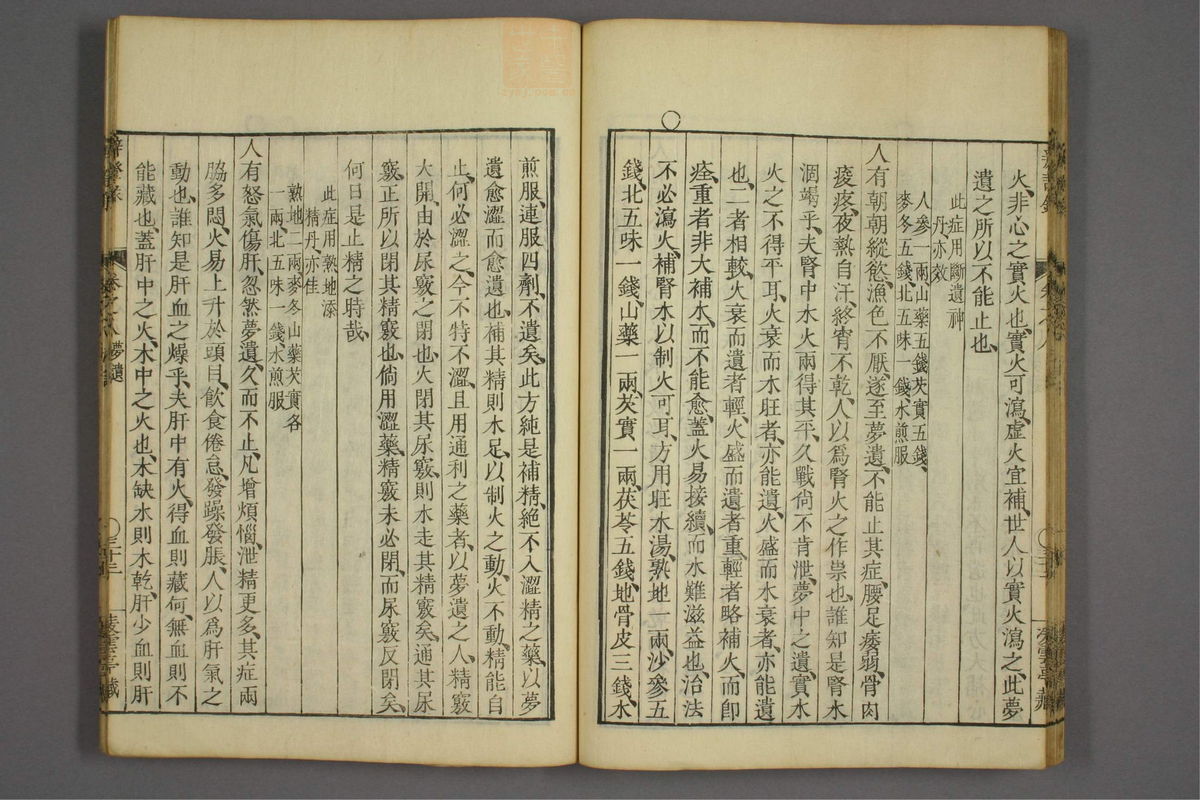 火、非心之實火也、實火可瀉、虛火宜補、世人以實火瀉之、此夢
遺之所以不能止也、
此症用斷遺神
丹、亦效
人參一兩、山藥五錢、芡實五錢、
麥冬五錢、北五味一錢、水煎服
人有朝朝縱慾、漁色不厭、遂至夢遺、不能止、其症、腰足痿弱、骨肉
痠疼、夜熱自汗、終宵不乾、人以爲腎火之作祟也、誰知是腎水
涸竭乎、夫腎中水火兩得其平、久戰尚不肯泄、夢中之遺、實水
火之不得平耳、火衰而水旺者、亦能遺、火盛而水衰者、亦能遺
也、二者相較、火衰而遺者輕、火盛而遺者重、輕者略補火而卽
痊、重者非大補水、而不能愈、蓋火易接續、而水難滋益也、治法
不必瀉火、補腎水以制火可耳、方用旺水湯、熟地一兩、沙參五
錢、北五味一錢、山藥一兩、芡實一兩、茯苓五錢、地骨皮三錢、水
煎服、連服四劑、不遺矣、此方純是補精、絕不入澀精之藥、以夢
遺愈澀而愈遺也、補其精則水足、以制火之動、火不動、精能自
止、何必澀之、今不特不澀、且用通利之藥者、以夢遺之人、精竅
大開、由於尿竅之閉也、火閉其尿竅、則水走其精竅矣、通其尿
竅、正所以閉其精竅也、倘用澀藥、精竅未必閉、而尿竅反閉矣、
何日是止精之時哉、
此症用熟地添
精丹、亦佳
熟地二兩、麥冬山藥芡實各
一兩、北五味一錢、水煎服
人有怒氣傷肝、忽然夢遺、久而不止、凡增煩惱、泄精更多、其症兩
脇多悶、火易上升於頭目、飲食倦怠、發躁發脹、人以爲肝氣之
動也、誰知是肝血之燥乎、夫肝中有火、得血則藏、何、無血則不
能藏也、蓋肝中之火、木中之火也、木缺水則木乾、肝少血則肝
卷之八
夢遺